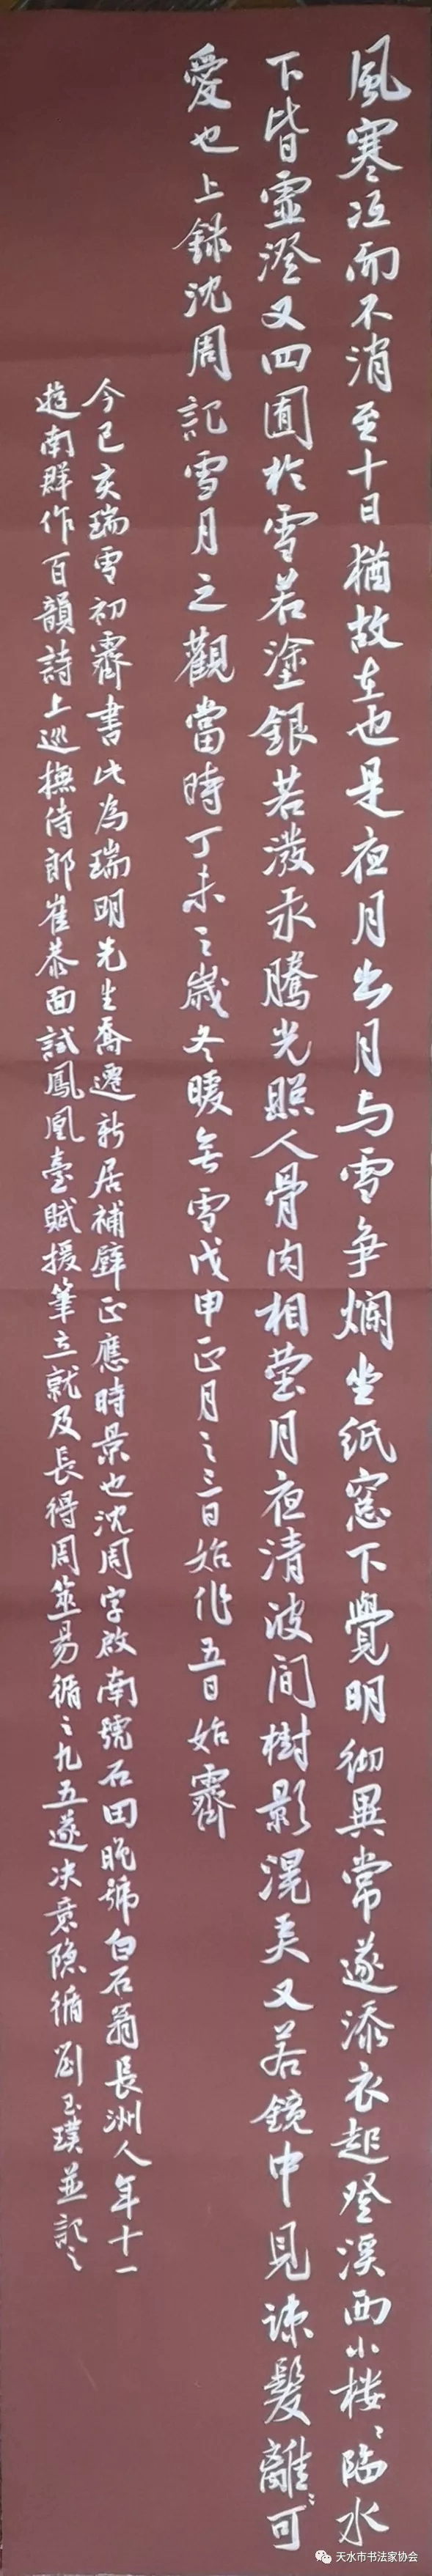 風寒冱而不消至十日猶故在也是夜月出月与雪争爛坐紙窓下覺明徹異常遂添衣起登溪西小楼〻臨水
下皆虛澄又四圍於雪若塗銀若潑汞騰光照人骨肉相莹月夜清波间樹影滉美又若鏡中見疎髮離〻可
愛也上録沈周記雪月之觀當時丁未之歲冬暖无雪戊申正月之三日始作五日始霽
今己亥瑞雪初霽書此為瑞明先生喬遷新居補壁正應時景也沈周字啟南號石田晚號白石翁長洲人年十一
遊南群作百韻詩上巡撫侍郎崔恭面試鳳凰臺賦援筆立就及長得周筮易循之九五遂决意隐循劉玉璞並記之
天水市书法家协会